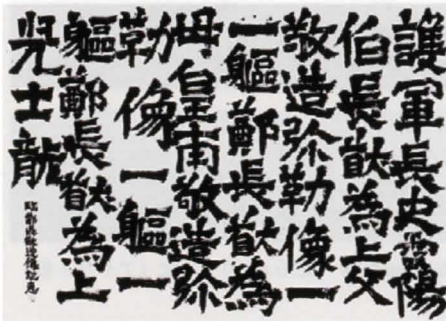 護軍長史雲陽
伯長猷為亡父
敬造弥勒像一
一軀鄭長猷為
母皇甫敬造弥
勒像一軀一
軀鄭長猷為亡
兄士龍
臨鄭長猷造像記意